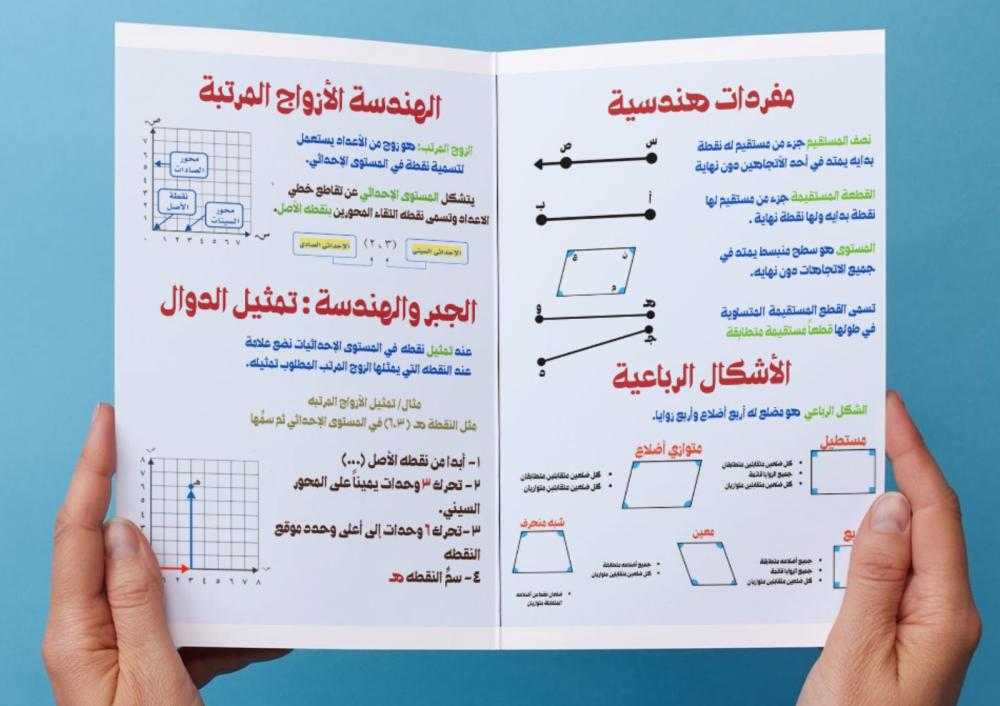 مفردات هندسية
نصف المستقيم جزء من مستقيم له نقطة
بدايه يمتد في أحد الأتجاهين دون نهاية
س
ص
القطعة المستقيمة جزء من مستقيم لها
نقطة بدايه ولها نقطة نهاية .
أ
ب
المستوى هو سطح منبسط يمتد في
جميع الاتجاهات دون نهايه.
ن
م
تسمى القطع المستقيمة المتساوية
في طولها قطعاً مستقيمة متطابقة
هـ
و
جـ
د
الأشكال الرباعية
الشكل الرباعي هو مضلع له أربع أضلاع وأربع زوايا.
مستطيل
كل ضلعين متقابلين متطابقان
جميع الزوايا قائمة
كل ضلعين متقابلين متوازيان
متوازي أضلاع
كل ضلعين متقابلين متطابقان
كل ضلعين متقابلين متوازيان
بع
جميع أضلاعه متطابقة
جميع الزوايا قائمة
كل ضلعين متقابلين متوازيان
معين
جميع أضلاعه متطابقة
كل ضلعين متقابلين متوازيان
شبه منحرف
ضلعان فقط من أضلاعه
المتقابلة متوازيان
الهندسة الأزواج المرتبة
الزوج المرتب: هو زوج من الأعداد يستعمل
لتسمية نقطة في المستوى الإحداثي.
يتشكل المستوى الإحداثي عن تقاطع خطي
الاعداد وتسمى نقطه التقاء المحورين بنقطه الأصل.
ص
٧
٦
٥
٤
٣
٢
١
٠ ١ ٢ ٣ ٤ ٥ ٦ ٧
س
محور
الصادات
نقطة
الأصل
محور
السينات
الإحداثي السيني
(٢،٣)
الإحداثي الصادي
الجبر والهندسة : تمثيل الدوال
عند تمثيل نقطه في المستوى الإحداثيات نضع علامة
عند النقطه التي يمثلها الزوج المرتب المطلوب تمثيله.
مثال/ تمثيل الأزواج المرتبه
مثل النقطة هـ (٦،٣) في المستوى الإحداثي ثم سمِّها
١- أبدا من نقطه الأصل (٠،٠)
٢- تحرك ٣ وحدات يميناً على المحور
السيني.
٣- تحرك ٦ وحدات إلى أعلى وحدد موقع
النقطه
٤- سمِّ النقطه هـ
٨
٧
٦
٥
٤
٣
٢
هـ
٢ ٣ ٤ ٥ ٦ ٧ ٨